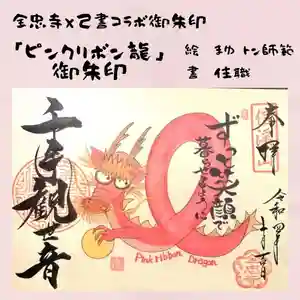 全忠寺×己書コラボ御朱印
「ピンクリボン龍」
御朱印
絵 功 トン師範
書 住職
奉拝
ずっと笑顔で
暮らせますように
千手観世音
Pink Ribbon Dragon
令和四年
十月一日